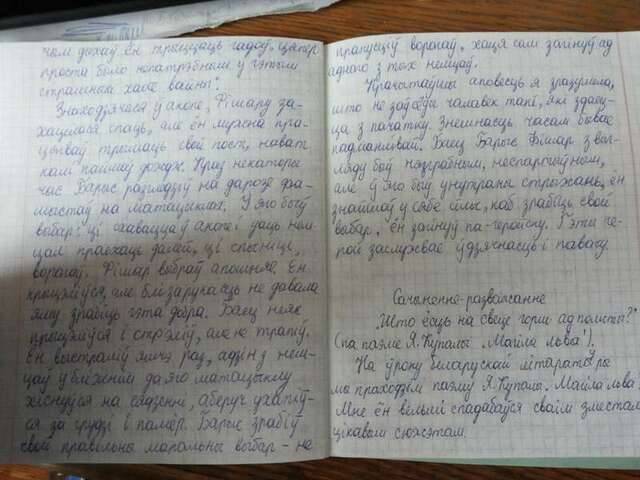 чым дыхаў ён трыццаць гадоў, цяпер
проста было непатрэбным у гэтым
страшным хаосе вайны".
Знаходзячыся ў акопе, Фішару за-
хацелася спаць, але ён мужна пра-
цягваў трымаць свой пост, нават
калі пайшоў дождж. Праз некаторы
час Барыс разгледзіў на дарозе фа-
шыстаў на матацыклах. У яго быў
выбар: ці схавацца ў акопе і даць нем-
цам праехаць далей, ці спыніць
ворагаў. Фішар выбраў апошняе. Ён
прыцэліўся, але блізарукасць не давала
яму зрабіць гэта добра. Баец неяк
прыцэліўся і стрэліў, але не трапіў.
Ён выстраліў яшчэ раз, адзін з нем-
цаў у бліжэйшым да яго матацыкле
хіснуўся на сядзенні, аберуч схапіў-
ся за грудзі і памёр. Барыс зрабіў
свой правільны маральны выбар - не
прапусціў ворагаў, хаця сам загінуў ад
аднаго з тых немцаў.
Прачытаўшы аповесць я зразумела,
што не заўсёды чалавек такі, які здаец-
ца з пачатку. Знешнасць часам бывае
падманлівай. Баец Барыс Фішар з выг-
ляду быў нязграбным, неспарытным,
але ў яго быў унутраны стрыжань, ён
знайшоў у сябе сілы, каб зрабіць свой
выбар, і ён загінуў па-геройску. Гэты ге-
рой заслужвае ўдзячнасць і павагу.
Сачыненне-разважанне
"Што ёсць на свеце горш ад помсты?"
(па паэме Я. Купалы "Магіла льва").
На ўроку беларускай літаратуры
мы праходзілі паэму Я. Купалы "Магіла льва".
Мне ён вельмі спадабаўся сваім зместам,
цікавым сюжэтам.